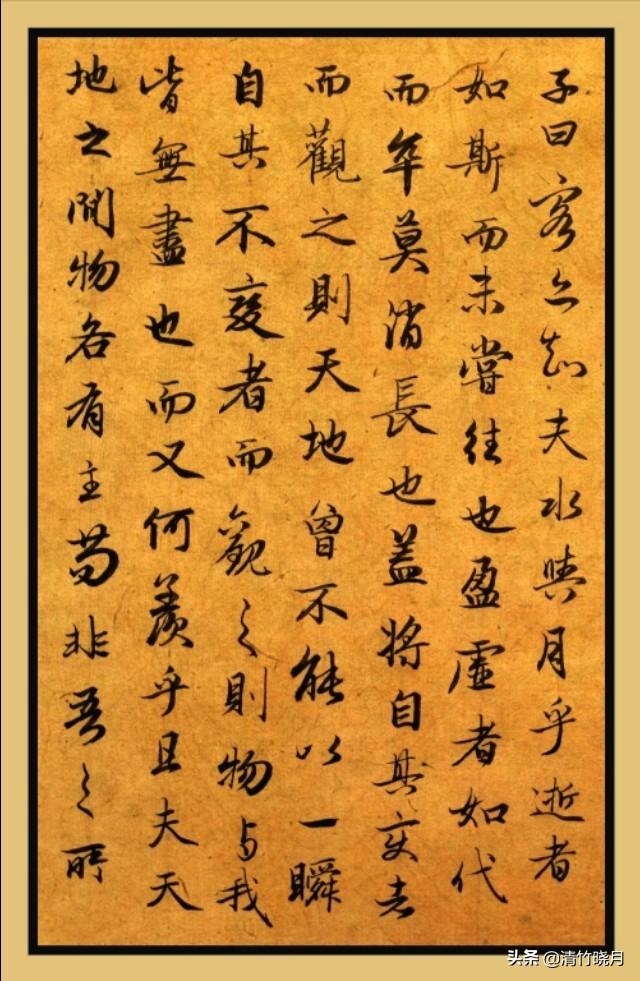 子曰客亦知夫水與月乎逝者
如斯而未嘗往也盈虛者如代
而卒莫消長也盖將自其变者
而觀之則天地曾不能以一瞬
自其不變者而觀之則物与我
皆無盡也而又何羨乎且夫天
地之間物各有主苟非吾之所
头条 @清竹晓月